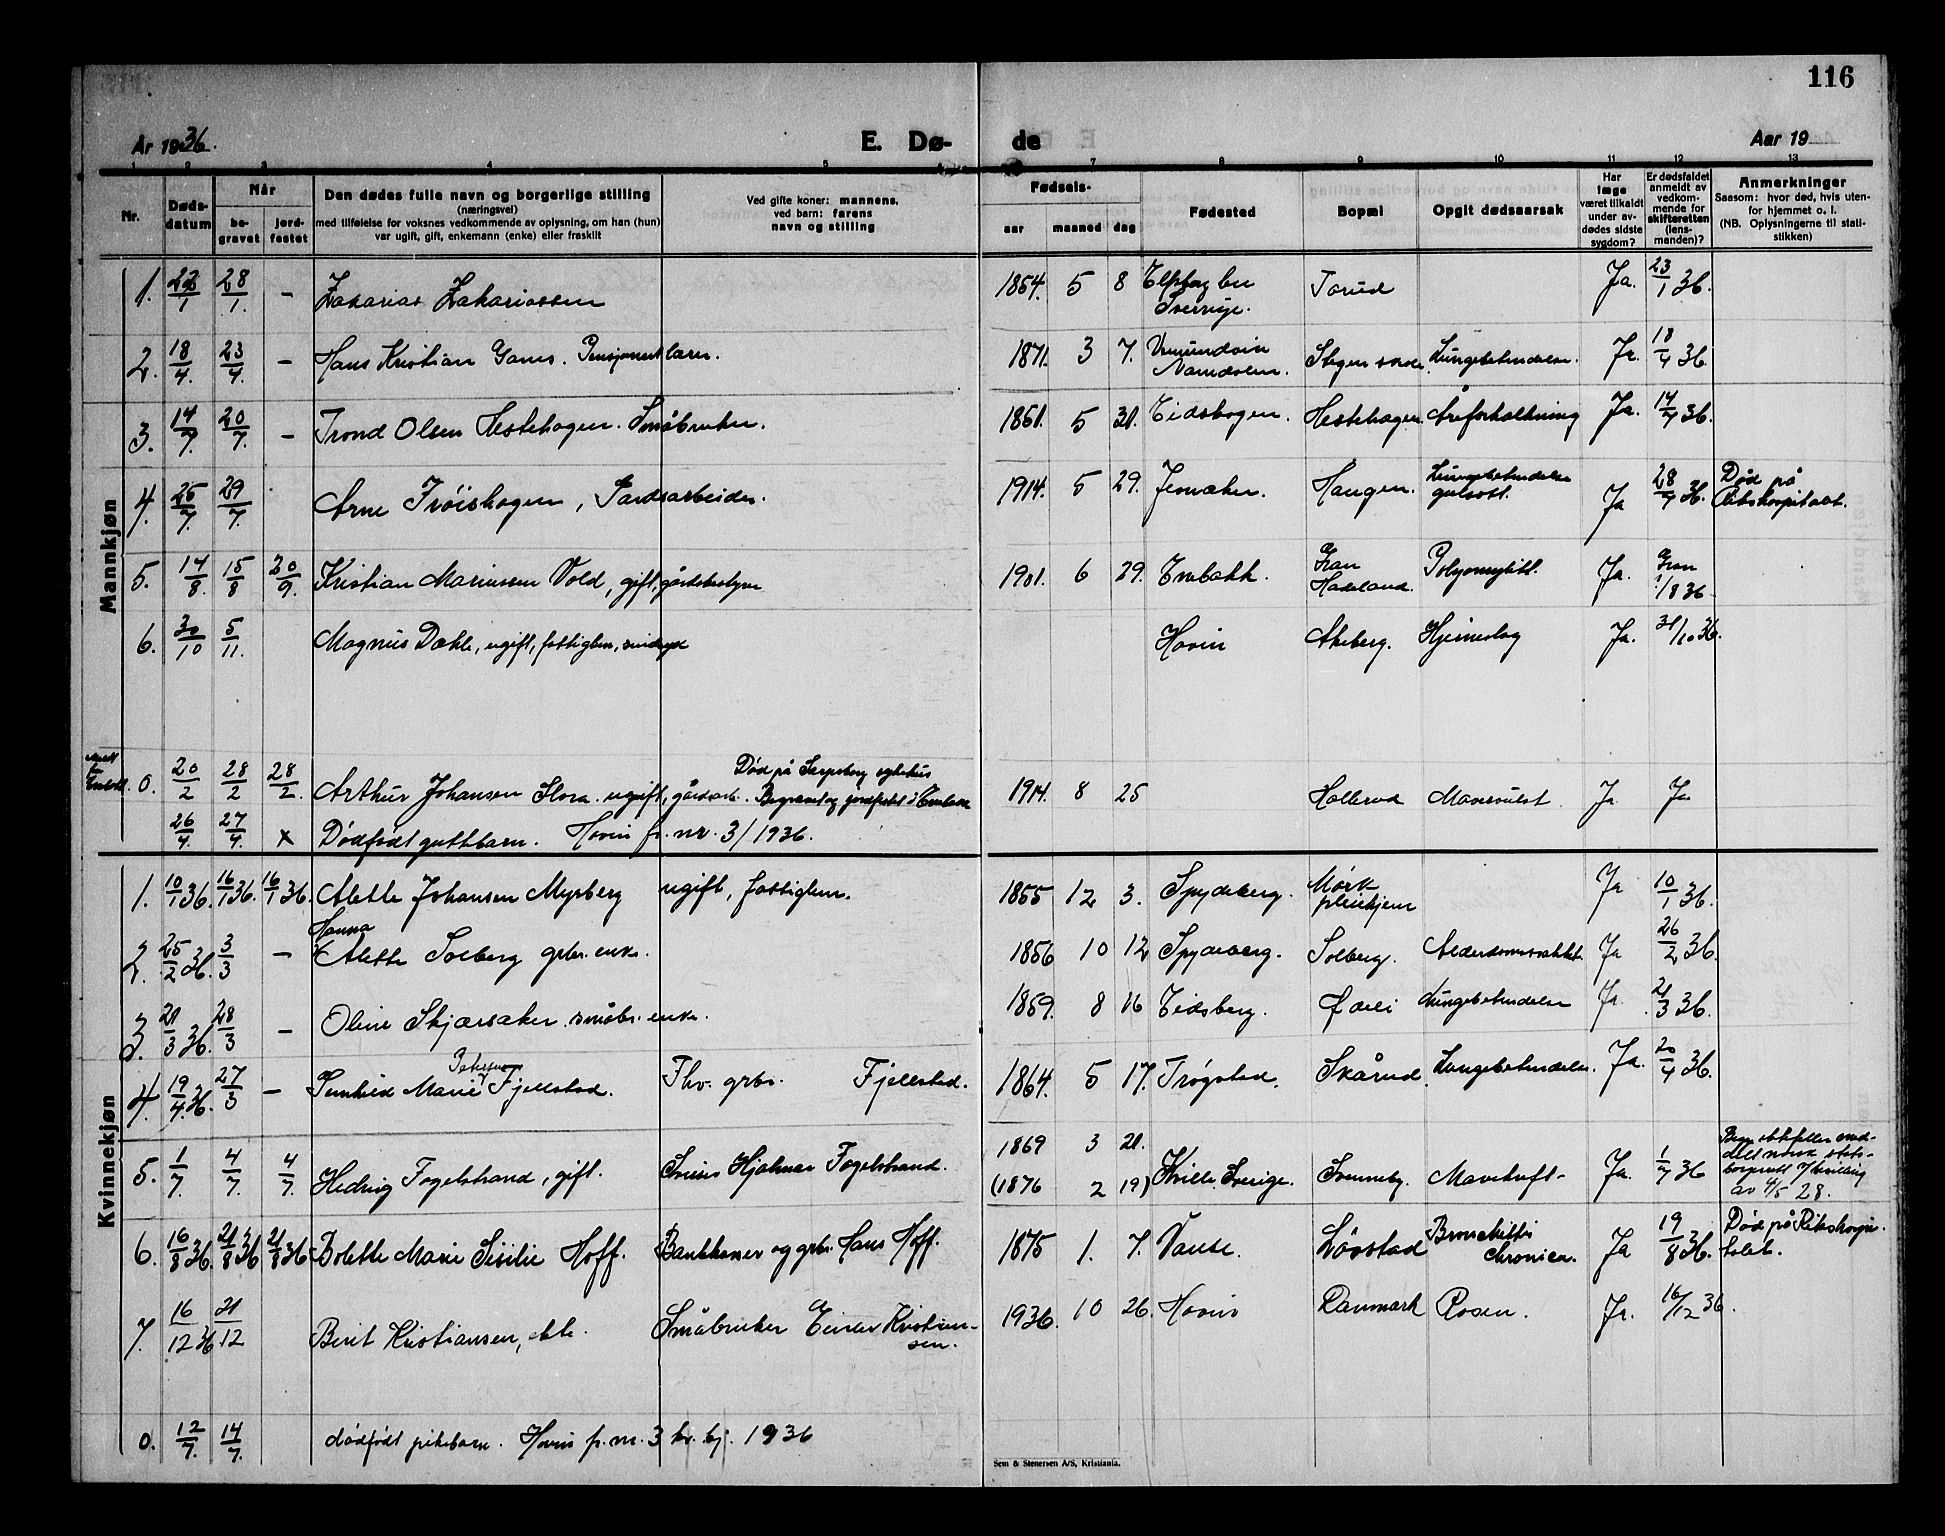 116
År 1936.
E. Dø- de
Aar 19
1 2 3 4 5 6 7 8 9 10 11 12 13
Nr.
Døds-
datum
Når
be-
gravet
jord-
festet
Den dødes fulle navn og borgerlige stilling
(næringsvei)
med tilføielse for voksnes vedkommende av oplysning, om han (hun)
var ugift, gift, enkemann (enke) eller fraskilt
Ved gifte koner: mannens,
ved barn: farens
navn og stilling
Fødsels-
aar maaned dag
Fødested
Bopæl
Opgit dødsaarsak
Har
læge
været tilkaldt
under av-
dødes sidste
sygdom?
Er dødsfaldet
anmeldt av
vedkom-
mende for
skifteretten
(lens-
manden)?
Anmerkninger
Saasom: hvor død, hvis uten-
for hjemmet o. l.
(NB. Oplysningerne til stati-
stikken)
Mannkjøn
1. 22/1 28/1. – Zakarias Zakariassen 1854. 5 8 Sverrige. Torud Ja. 23/1 36.
2. 18/4. 23/4. – Hans Kristian Ganes. 1871. 3 7. Namdalen. Lungebetendelse. Ja. 18/4 36
3. 14/7. 20/7. – Trond Olsen Hestehagen. Småbruker. 1851. 5 31. Eidsbogen. Hestehagen. Åreforkalkning Ja. 14/7 36.
4. 25/7. 29/7. Arne Frøishagen, Gårdsarbeider. 1914. 5 29. Jevnaker. Haugen. Lungebetendelse gulsott. Ja 28/7 36. Død på Rikshospitalet.
5. 14/8. 15/8 20/9. Kristian Mariussen Vold, gift, gårdsbestyrer 1901. 6 29. Enebakk. Gran Hadeland. Polyomyelitt. Ja. Gran 1/8 36
6. 30/10 5/11. Magnus Dæhle, ugift, fattiglem, Hovin Akeberg. Hjerneslag Ja. 31/10 36.
0. 20/2 28/2 28/2. Arthur Johansen Slora. ugift, gårdsarb. Død på Sarpsborg sykehus Begravet og jordfestet i Enebakk 1914. 8 25 Hallerud Mavesvulst. Ja Ja
26/4. 27/4. x Dødfødt guttbarn. Hovin fr. nr. 3/1936.
Kvinnekjøn
1. 10/1 36. 16/1 36. 16/1 36. Alette Johansen Myrberg ugift, fattiglem. 1855 12 3. Spydeberg. Mørk pleiehjem Ja 10/1 36.
2. 25/2 36. 3/3 – Hanna Alette Solberg grbr. enke. 1856 10 12 Spydeberg. Solberg. Alderdomssvakhet Ja 26/2 36.
3. 21/3 36. 28/3 – Oline Skjærsaker småbr. enke. 1859. 8 16 Eidsberg. Lungebetendelse Ja. 21/3 36.
4. 19/4. 36. 27/3 – Gunhild Marie Petersen Fjellstad. Fhv. grbr. Fjellstad. 1864. 5 17. Trøgstad. Skårud. Lungebetendelse. Ja. 20/4 36.
5. 1/7. 4/7. 4/7. Hedvig Fogelstrand, gift. Hjalmar Fogelstrand. 1869 3 21. (1876 2 19) Kville. Sverige. Svenneby. Mavekreft– Ja. 1/7 36 av 4/5 28.
6. 16/8 36. 21/8 36 21/8 36 Bolette Marie Sisilie Hoff. Bankkaser og grbr. Hans Hoff. 1875 1. 7. Vanse. Løvstad Bronchitis chronica. Ja 19/8 36. Død på Rikshospitalet.
7. 16/12 36 21/12 Birit Kristiansen, ekte. Småbruker Einar Kristiansen. 1936. 10 26. Hovin Danmark Rosen. Ja. 16/12 36.
0. 12/7. 14/7. dødfødt pikebarn. Hovin fr. nr. 3 kr. bj. 1936
Sem & Stenersen A/S, Kristiania.